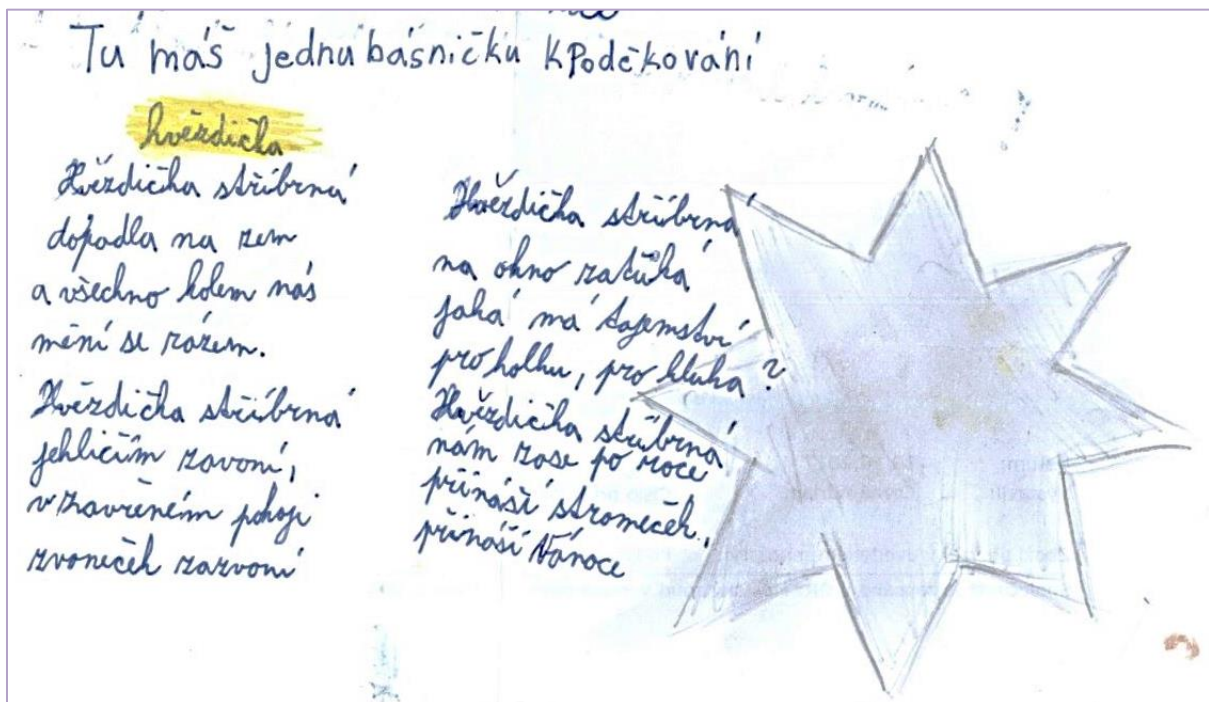 Tu máš jednu básničku k Poděkování
hvězdička
Hvězdička stříbrná
dopadla na zem
a všechno kolem nás
mění se rázem.
Hvězdička stříbrná
jehličím zavoní,
v zavřeném pokoji
zvoneček zazvoní
Hvězdička stříbrná
na okno zaťuká
jaká má tajemství
pro holku, pro kluka?
Hvězdička stříbrná
nám zase po roce
přináší stromeček,
přináší Vánoce